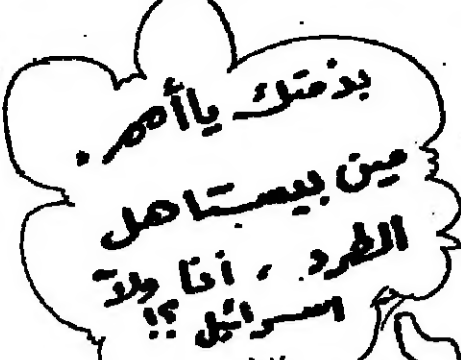 بذمتك يا أمم .
مين بيستاهل
الطرد ، أنا ولا
اسرائيل ؟!